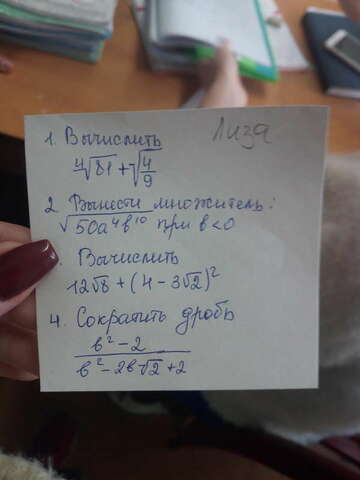 Лиза
1. Вычислить
⁴√81 + √4/9
2. Вынести множитель:
√50a⁴b¹⁰ при b<0
. Вычислить
12√8 + (4 - 3√2)²
4. Сократить дробь
b² - 2
b² - 2b√2 + 2